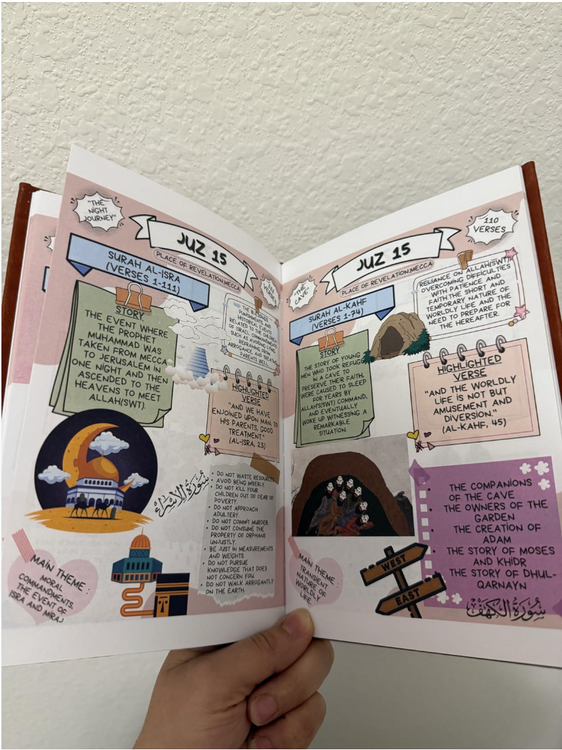 "THE
NIGHT
JOURNEY"
JUZ 15
PLACE OF REVELATION:MECCA
SURAH AL-ISRA
(VERSES 1-111)
STORY
THE EVENT WHERE
THE PROPHET
MUHAMMAD WAS
TAKEN FROM MECCA
TO JERUSALEM IN
ONE NIGHT AND THEN
ASCENDED TO THE
HEAVENS TO MEET
ALLAH(SWT).
HIGHLIGHTED
VERSE
"AND WE HAVE
ENJOINED UPON MAN, TO
HIS PARENTS, GOOD
TREATMENT."
(AL-ISRA, 23)
سورة الإسراء
• DO NOT WASTE RESOURCES
• AVOID BEING MISERLY.
• DO NOT KILL YOUR
CHILDREN OUT OF FEAR OF
POVERTY.
• DO NOT APPROACH
ADULTERY.
• DO NOT COMMIT MURDER.
• DO NOT CONSUME THE
PROPERTY OF ORPHANS
UNJUSTLY.
• BE JUST IN MEASUREMENTS
AND WEIGHTS.
• DO NOT PURSUE
KNOWLEDGE THAT DOES
NOT CONCERN YOU.
• DO NOT WALK ARROGANTLY
ON THE EARTH.
MAIN THEME :
MORAL
COMMANDMENTS,
THE EVENT OF
ISRA AND MIRAJ
"THE
CAVE"
JUZ 15
110
VERSES
PLACE OF REVELATION:MECCA
SURAH AL-KAHF
(VERSES 1-74)
RELIANCE ON ALLAH(SWT),
OVERCOMING DIFFICULTIES
WITH PATIENCE AND
FAITH,THE SHORT AND
TEMPORARY NATURE OF
WORLDLY LIFE AND THE
NEED TO PREPARE FOR
THE HEREAFTER.
STORY
THE STORY OF YOUNG
MEN WHO TOOK REFUGE
IN A CAVE TO
PRESERVE THEIR FAITH,
WERE CAUSED TO SLEEP
FOR YEARS BY
ALLAH(SWT) COMMAND,
AND EVENTUALLY
WOKE UP WITNESSING A
REMARKABLE
SITUATION.
HIGHLIGHTED
VERSE
"AND THE WORLDLY
LIFE IS NOT BUT
AMUSEMENT AND
DIVERSION."
(AL-KAHF, 45)
THE COMPANIONS
OF THE CAVE
THE OWNERS OF THE
GARDEN
THE CREATION OF
ADAM
• THE STORY OF MOSES
AND KHIDR
• THE STORY OF DHUL-
QARNAYN
WEST
EAST
MAIN THEME :
TRANSIENT
NATURE OF
WORLDLY
LIFE
سورة الكهف